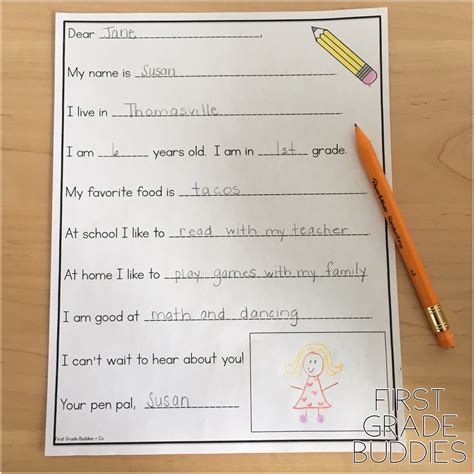 Dear Jane,
My name is Susan
I live in Thomasville
I am 6 years old. I am in 1st grade.
My favorite food is tacos
At school I like to read with my teacher
At home I like to play games with my family
I am good at math and dancing
I can't wait to hear about you!
Your pen pal, Susan
First Grade Buddies + Co.
FIRST
GRADE
BUDDIES